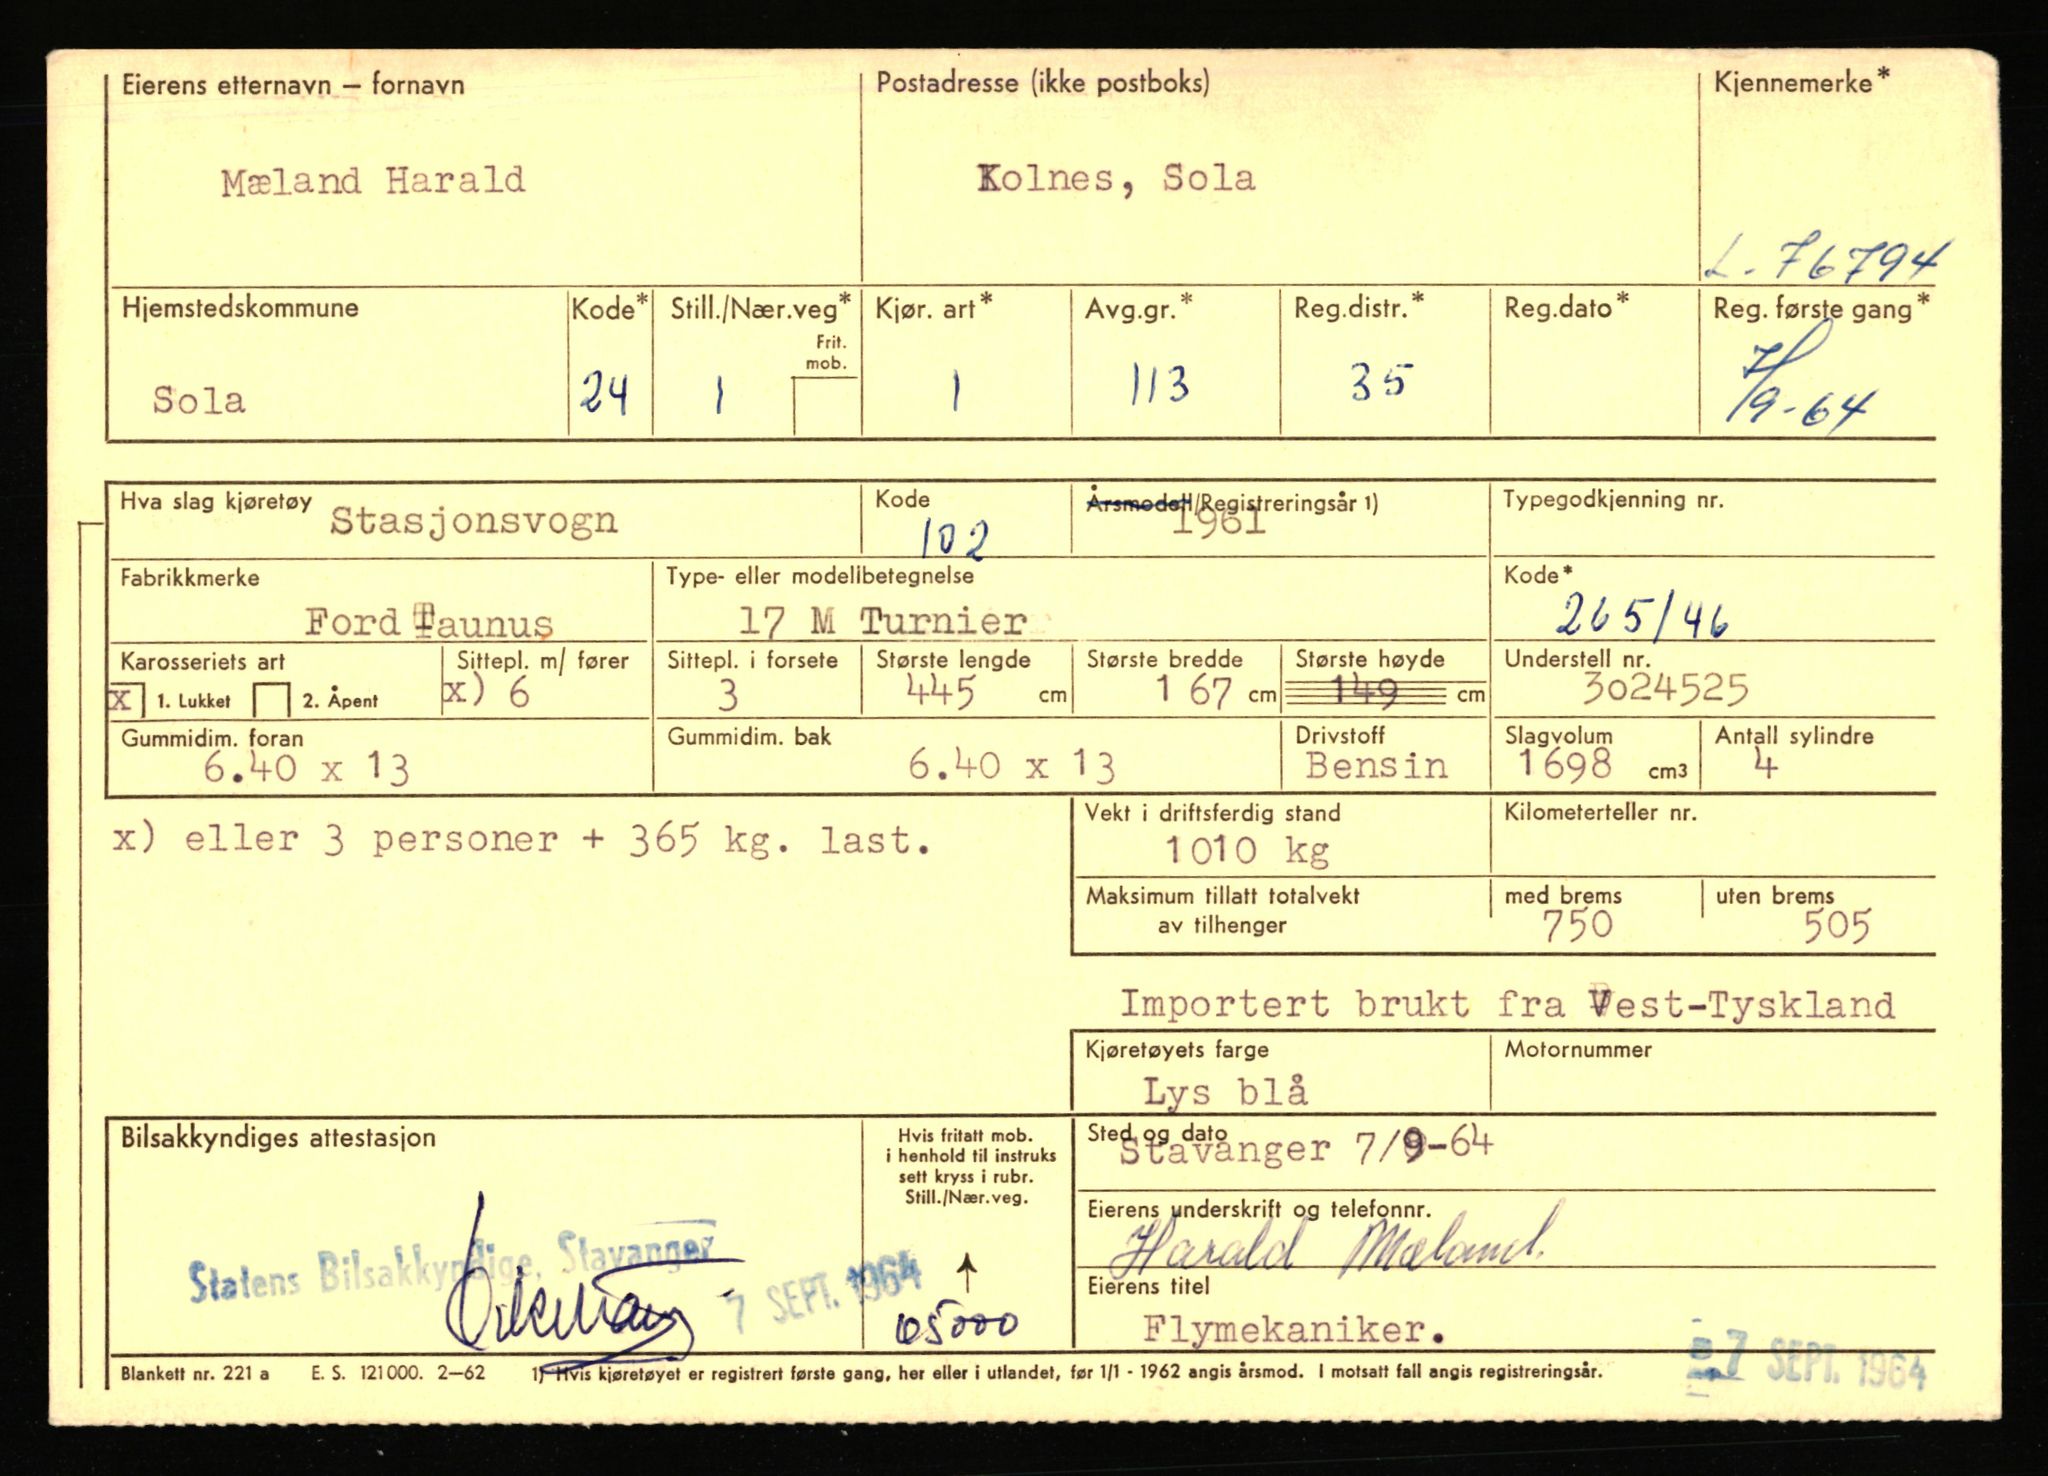 Eierens etternavn – fornavn Postadresse (ikke postboks) Kjennemerke*
Mæland Harald Kolnes, Sola
L-76794
Hjemstedskommune Kode* Still./Nær.veg* Kjør. art* Avg.gr.* Reg.distr.* Reg.dato* Reg. første gang*
Frit. mob.
Sola 24 1 1 113 35 7/9-64
Hva slag kjøretøy Stasjonsvogn Kode 102 Årsmodell/Registreringsår 1) 1961 Typegodkjenning nr.
Fabrikkmerke Type- eller modellbetegnelse Kode*
Ford Taunus 17 M Turnier 265/46
Karosseriets art Sittepl. m/ fører Sittepl. i forsete Største lengde Største bredde Største høyde Understell nr.
x 1. Lukket 2. Åpent x) 6 3 445 cm 167 cm 149 cm 3024525
Gummidim. foran Gummidim. bak Drivstoff Slagvolum Antall sylindre
6.40 x 13 6.40 x 13 Bensin 1698 cm3 4
x) eller 3 personer + 365 kg. last.
Vekt i driftsferdig stand Kilometerteller nr.
1010 kg
Maksimum tillatt totalvekt med brems uten brems
av tilhenger 750 505
Importert brukt fra Vest-Tyskland
Kjøretøyets farge Motornummer
Lys blå
Bilsakkyndiges attestasjon
Hvis fritatt mob.
i henhold til instruks
sett kryss i rubr.
Still./Nær.veg.
Sted og dato
Stavanger 7/9-64
Eierens underskrift og telefonnr.
Harald Mæland.
Statens Bilsakkyndige, Stavanger
7 SEPT. 1964
Eierens titel
Flymekaniker.
7 SEPT. 1964
Blankett nr. 221 a E. S. 121000. 2–62 1) Hvis kjøretøyet er registrert første gang, her eller i utlandet, før 1/1 - 1962 angis årsmod. I motsatt fall angis registreringsår.